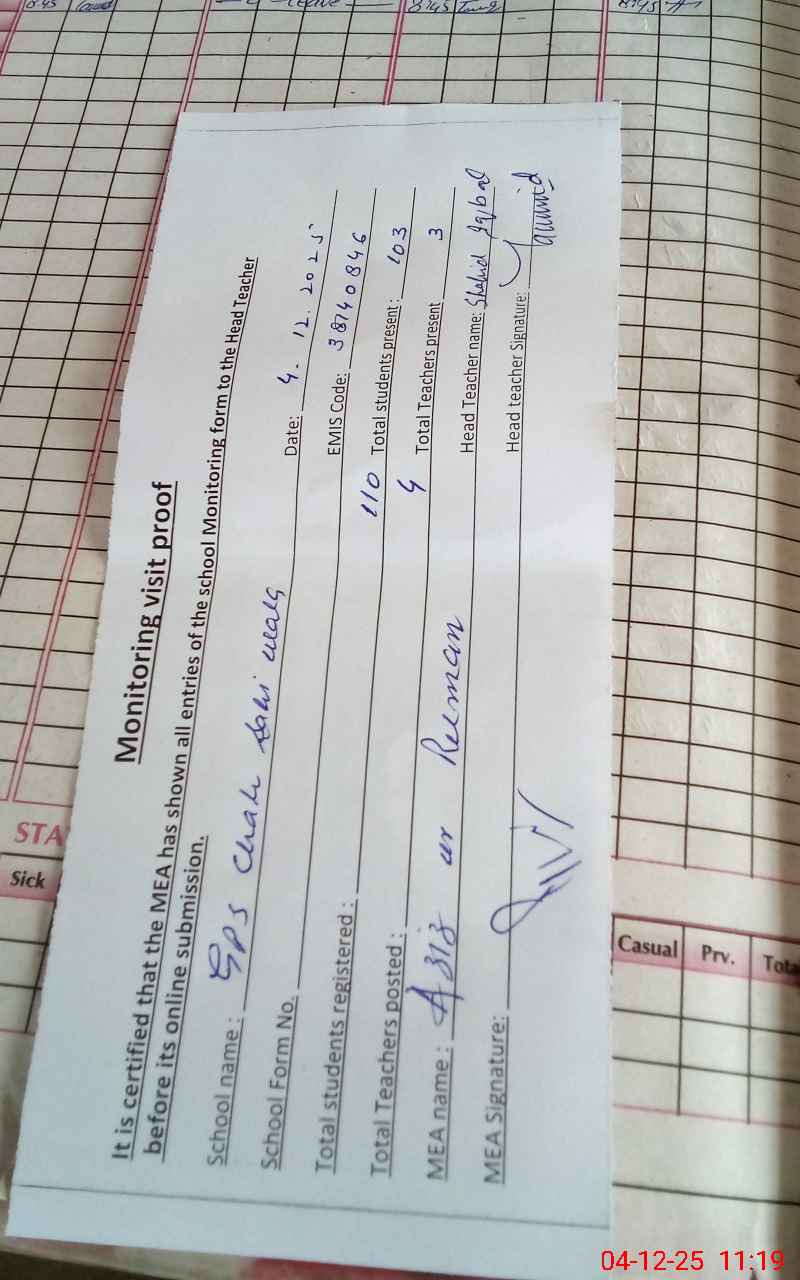 Monitoring visit proof
It is certified that the MEA has shown all entries of the school Monitoring form to the Head Teacher
before its online submission.
School name: GPS Chak Date: 4. 12. 2025
School Form No. EMIS Code: 38740846
Total students registered: 110 Total students present: 103
Total Teachers posted: 4 Total Teachers present 3
MEA name: Aziz ur Rehman Head Teacher name: Shahid Iqbal
MEA Signature: Head teacher Signature:
STA
Sick
Casual Prv. Tota
8:45
04-12-25 11:19